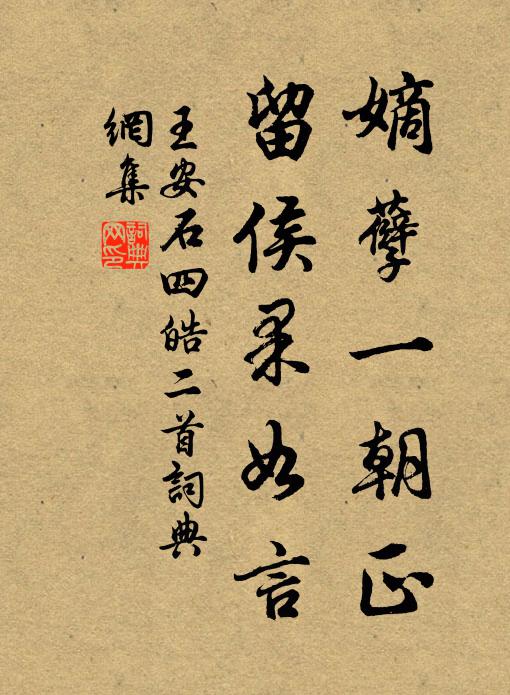 嫡孽一朝正
留侯果如言
王安石四皓二首詞典
網集
詞典網印